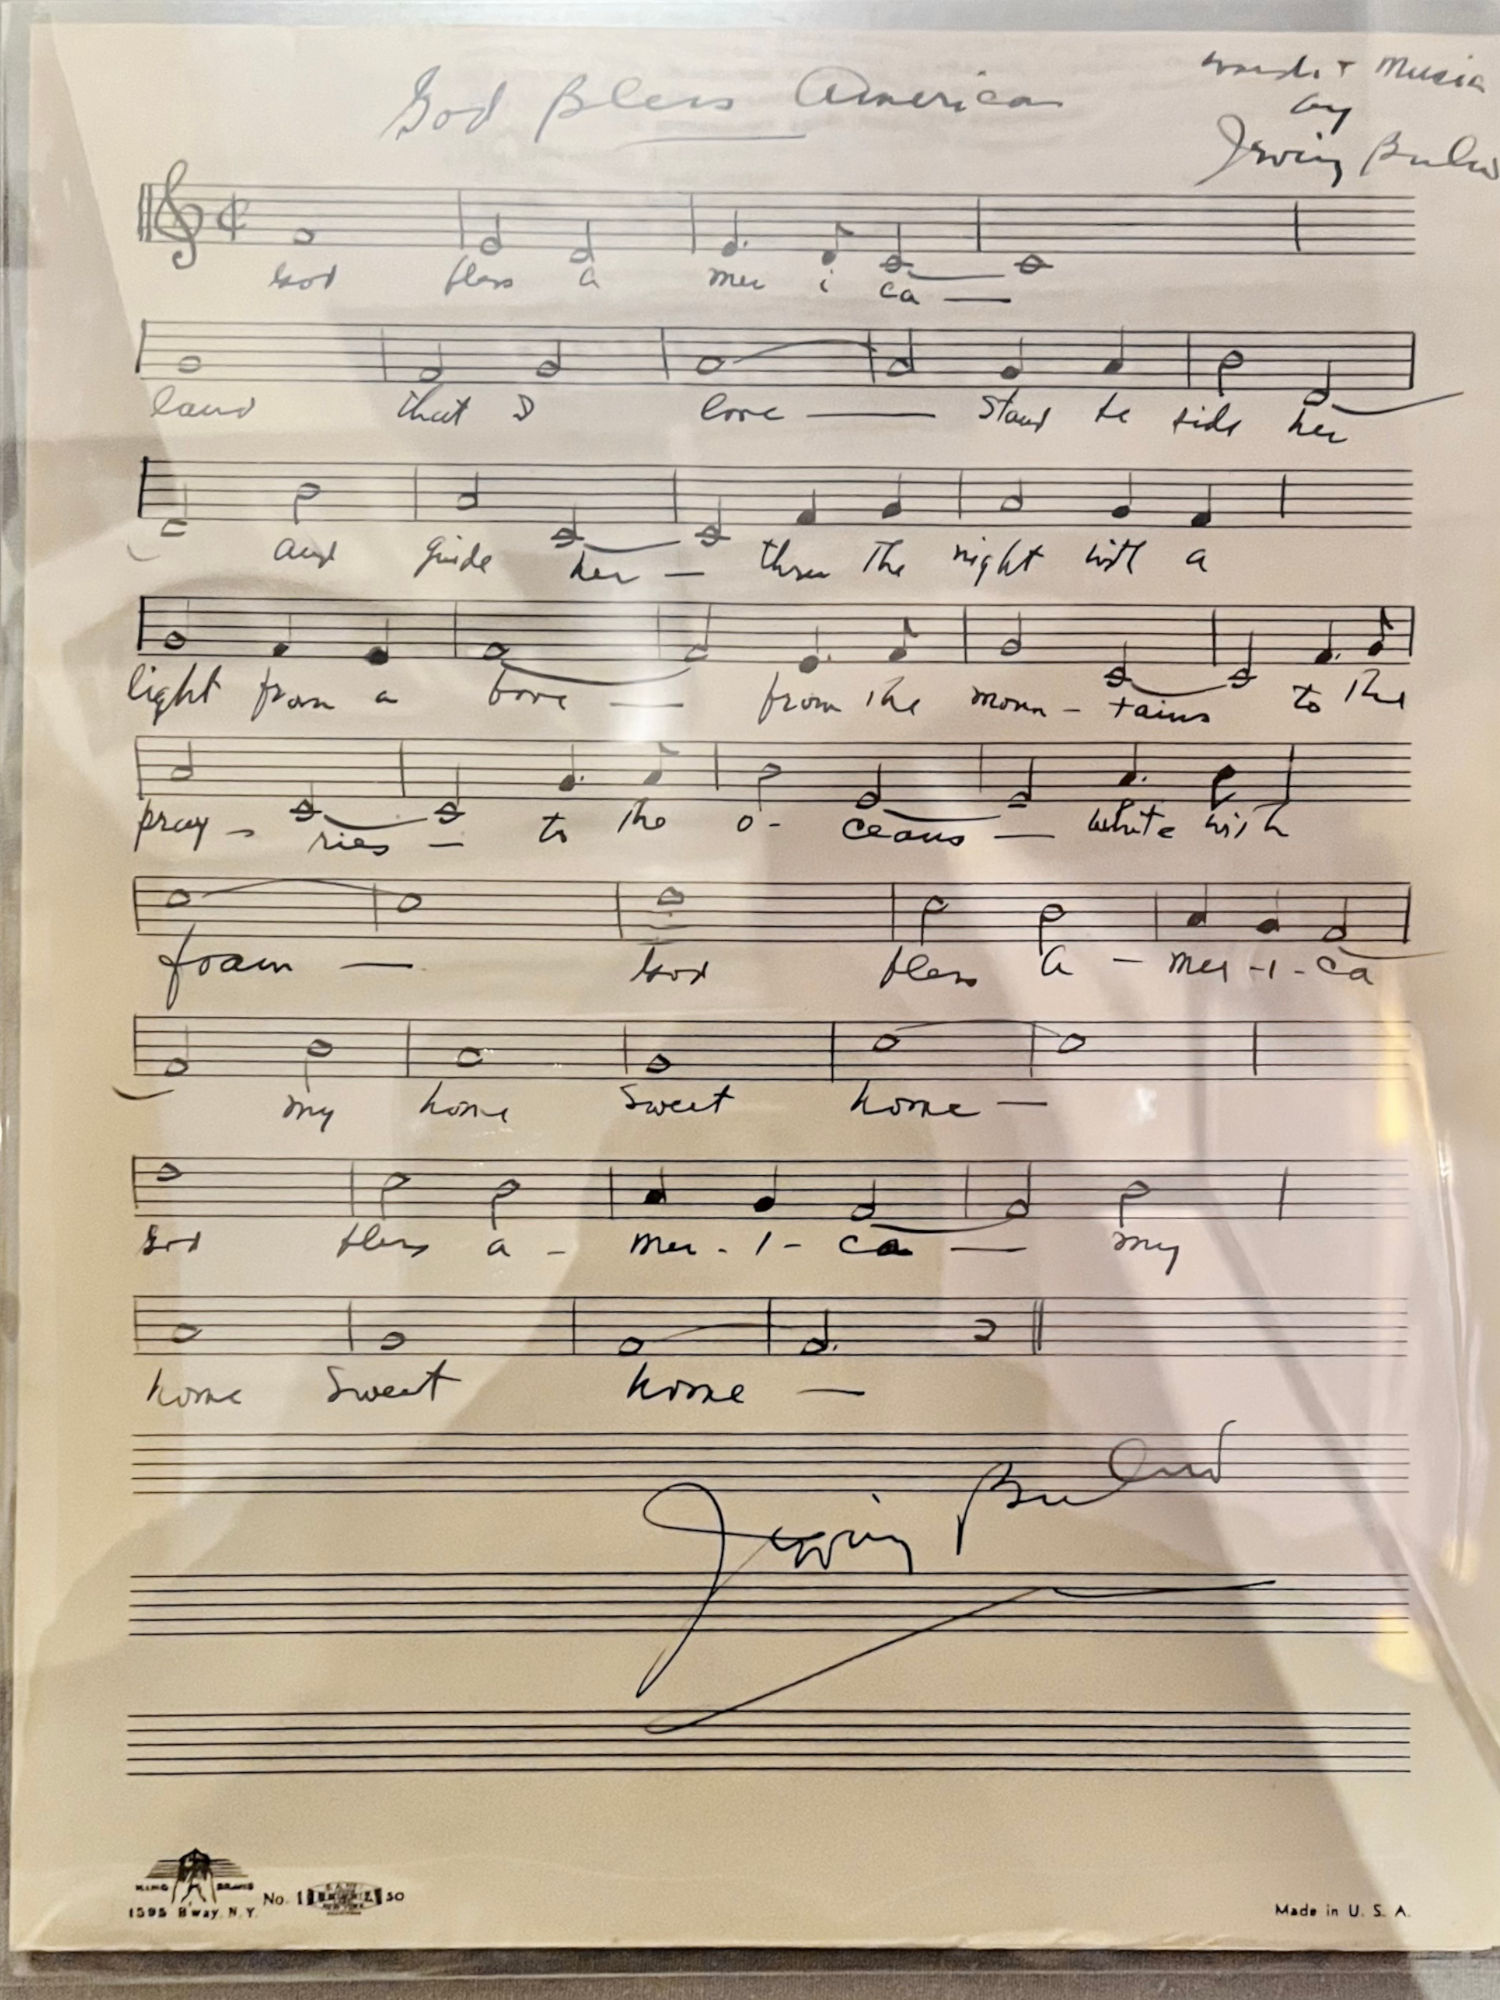 God Bless America
Words + Music
by
Irving Berlin
God bless a mer i ca —
land that I love — stand be side her
and guide her — thru the night with a
light from a bove — from the moun - tains to the
pray - ries — to the o - ceans — white with
foam — God bless a - mer - i - ca
my home sweet home —
God bless a - mer - i - ca — my
home sweet home —
Irving Berlin
KING BRAND
1595 B'way, N.Y. No. 1
Made in U. S. A.